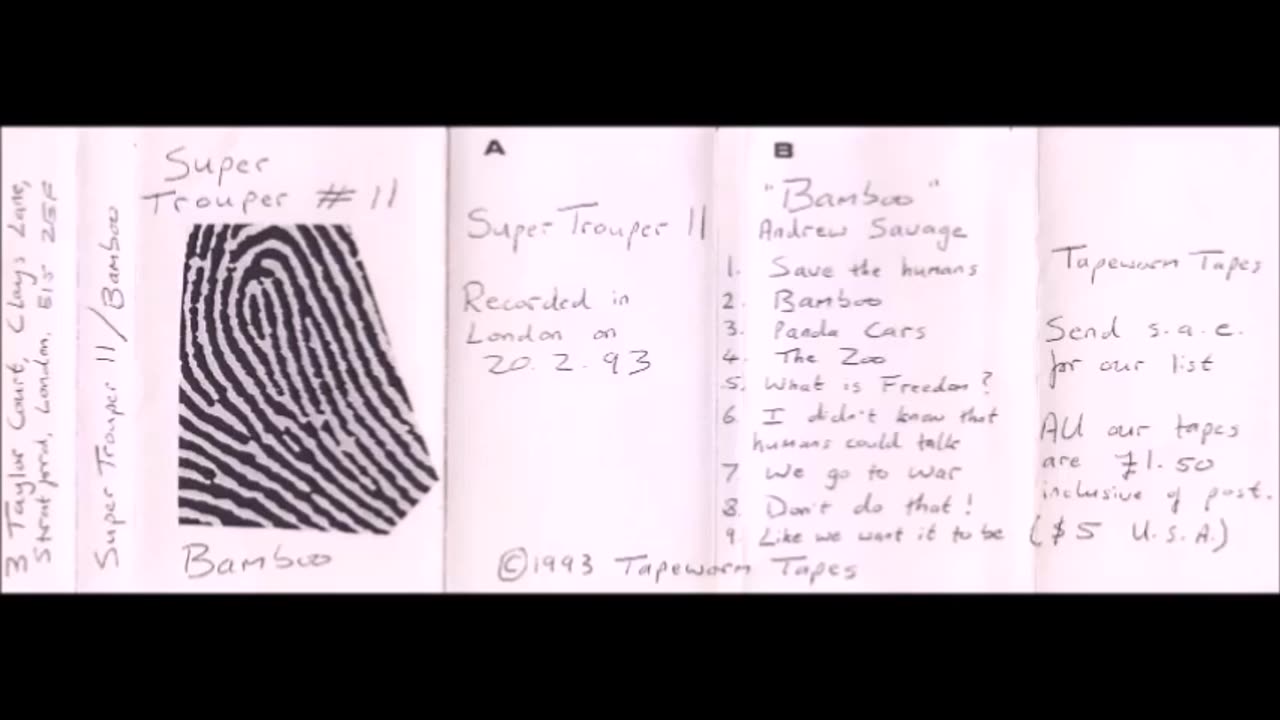 3 Taylor Court, Clays Lane,
Stratford, London. E15 2EF
Super Trouper 11/Bamboo
Super
Trouper # 11
Bamboo
A
Super Trouper 11
Recorded in
London on
20. 2. 93
B
"Bamboo"
Andrew Savage
1. Save the humans
2. Bamboo
3. Panda Cars
4. The Zoo
5. What is Freedom?
6 I didn't know that
humans could talk
7 We go to war
8. Don't do that!
9. Like we want it to be
©1993 Tapeworm Tapes
Tapeworm Tapes
Send s.a.e.
for our list
All our tapes
are £1.50
inclusive of post.
($5 U.S.A.)